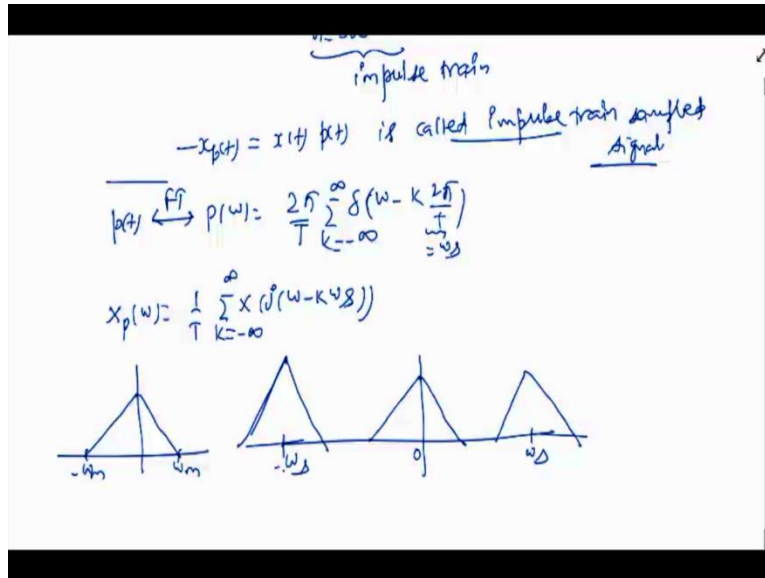 impulse train
-xp(t) = x(t) p(t) is called Impulse train sampled
signal
p(t) FT ↔ P(ω) = 2π/T ∑ k=-∞ ∞ δ(ω - k 2π/T)
= ωs
Xp(ω) = 1/T ∑ k=-∞ ∞ X(j(ω-kωs))
-ωm ωm -ωs 0 ωs